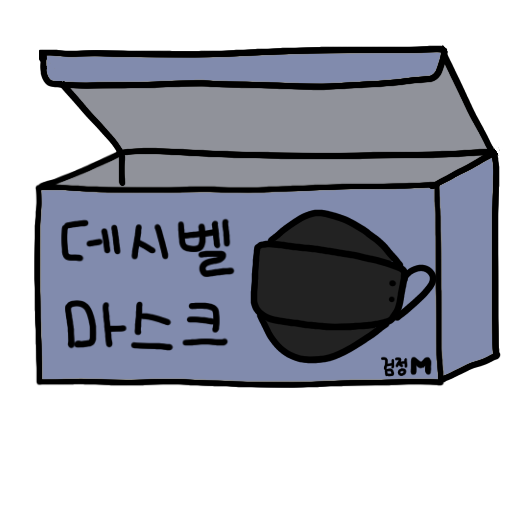 데시벨
마스크
검정 M